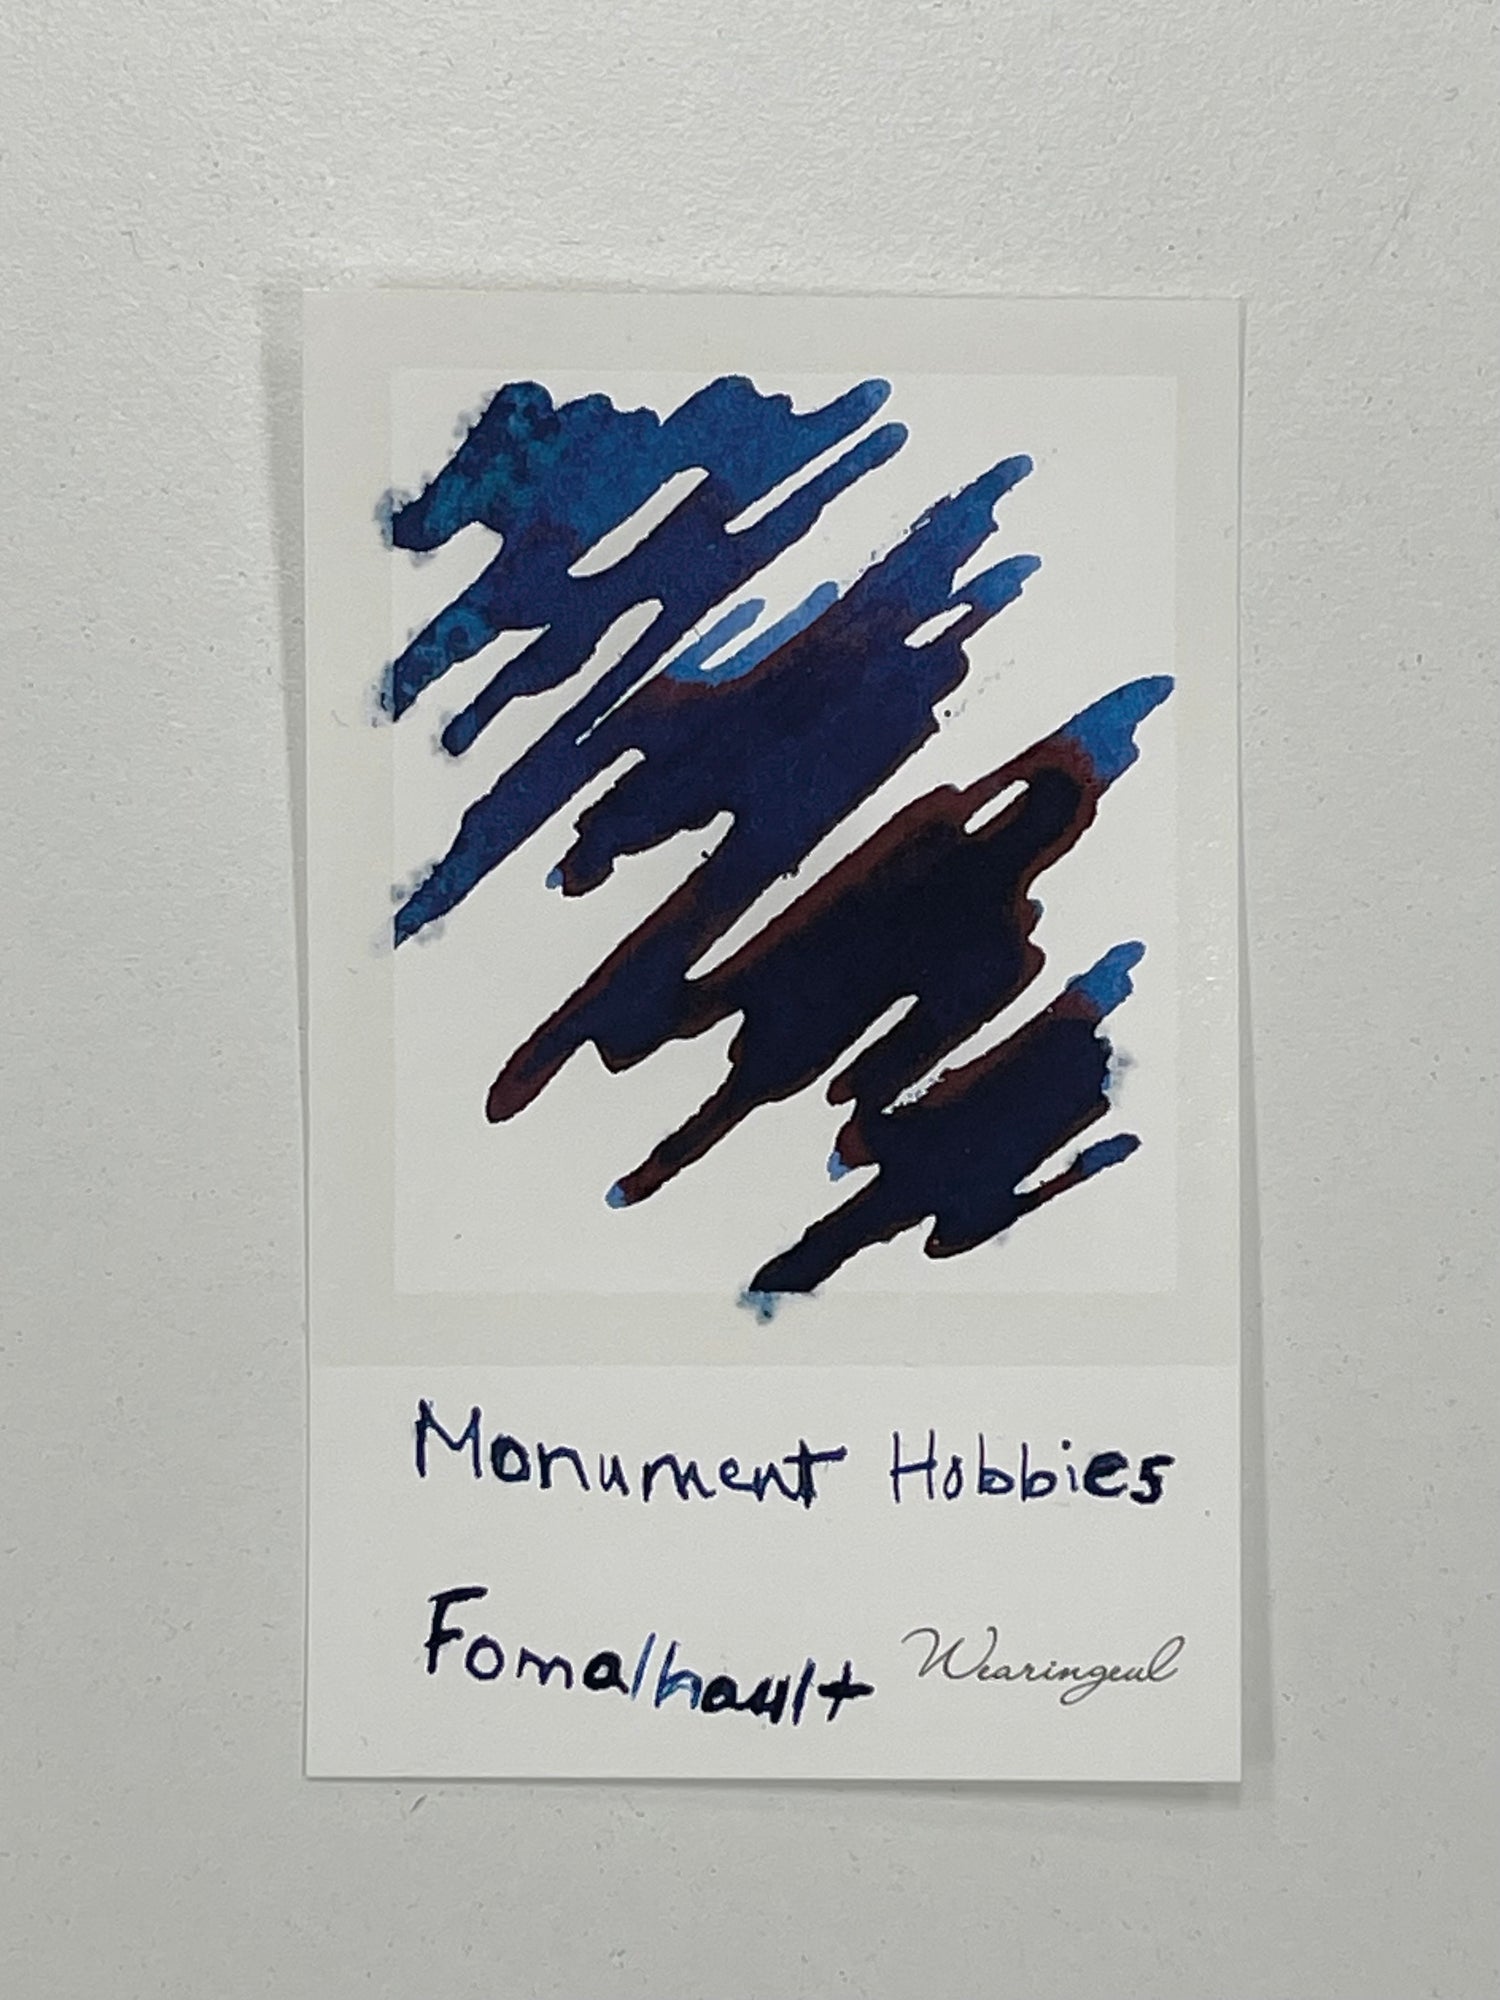 Monument Hobbies
Fomalhault Wearingeul